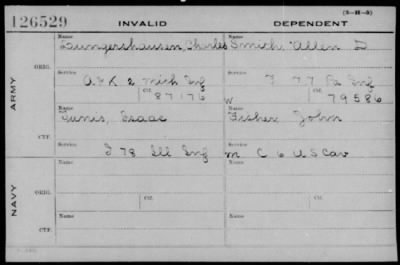 (3-H-5)
126529 INVALID DEPENDENT
Name Name
Charles Smith Allen D
ORIG.
Service Service
2 Mich Inf F 77 Pa Inf
Ctf. Ctf.
87176 W 79586
ARMY
Name Name
Tunis, Isaac Fisher John
CTF.
Service Service
I 78 Ill Inf m C 6 U S Cav
Name Name
ORIG.
Service Ctf. Service Ctf.
NAVY
Name Name
CTF.